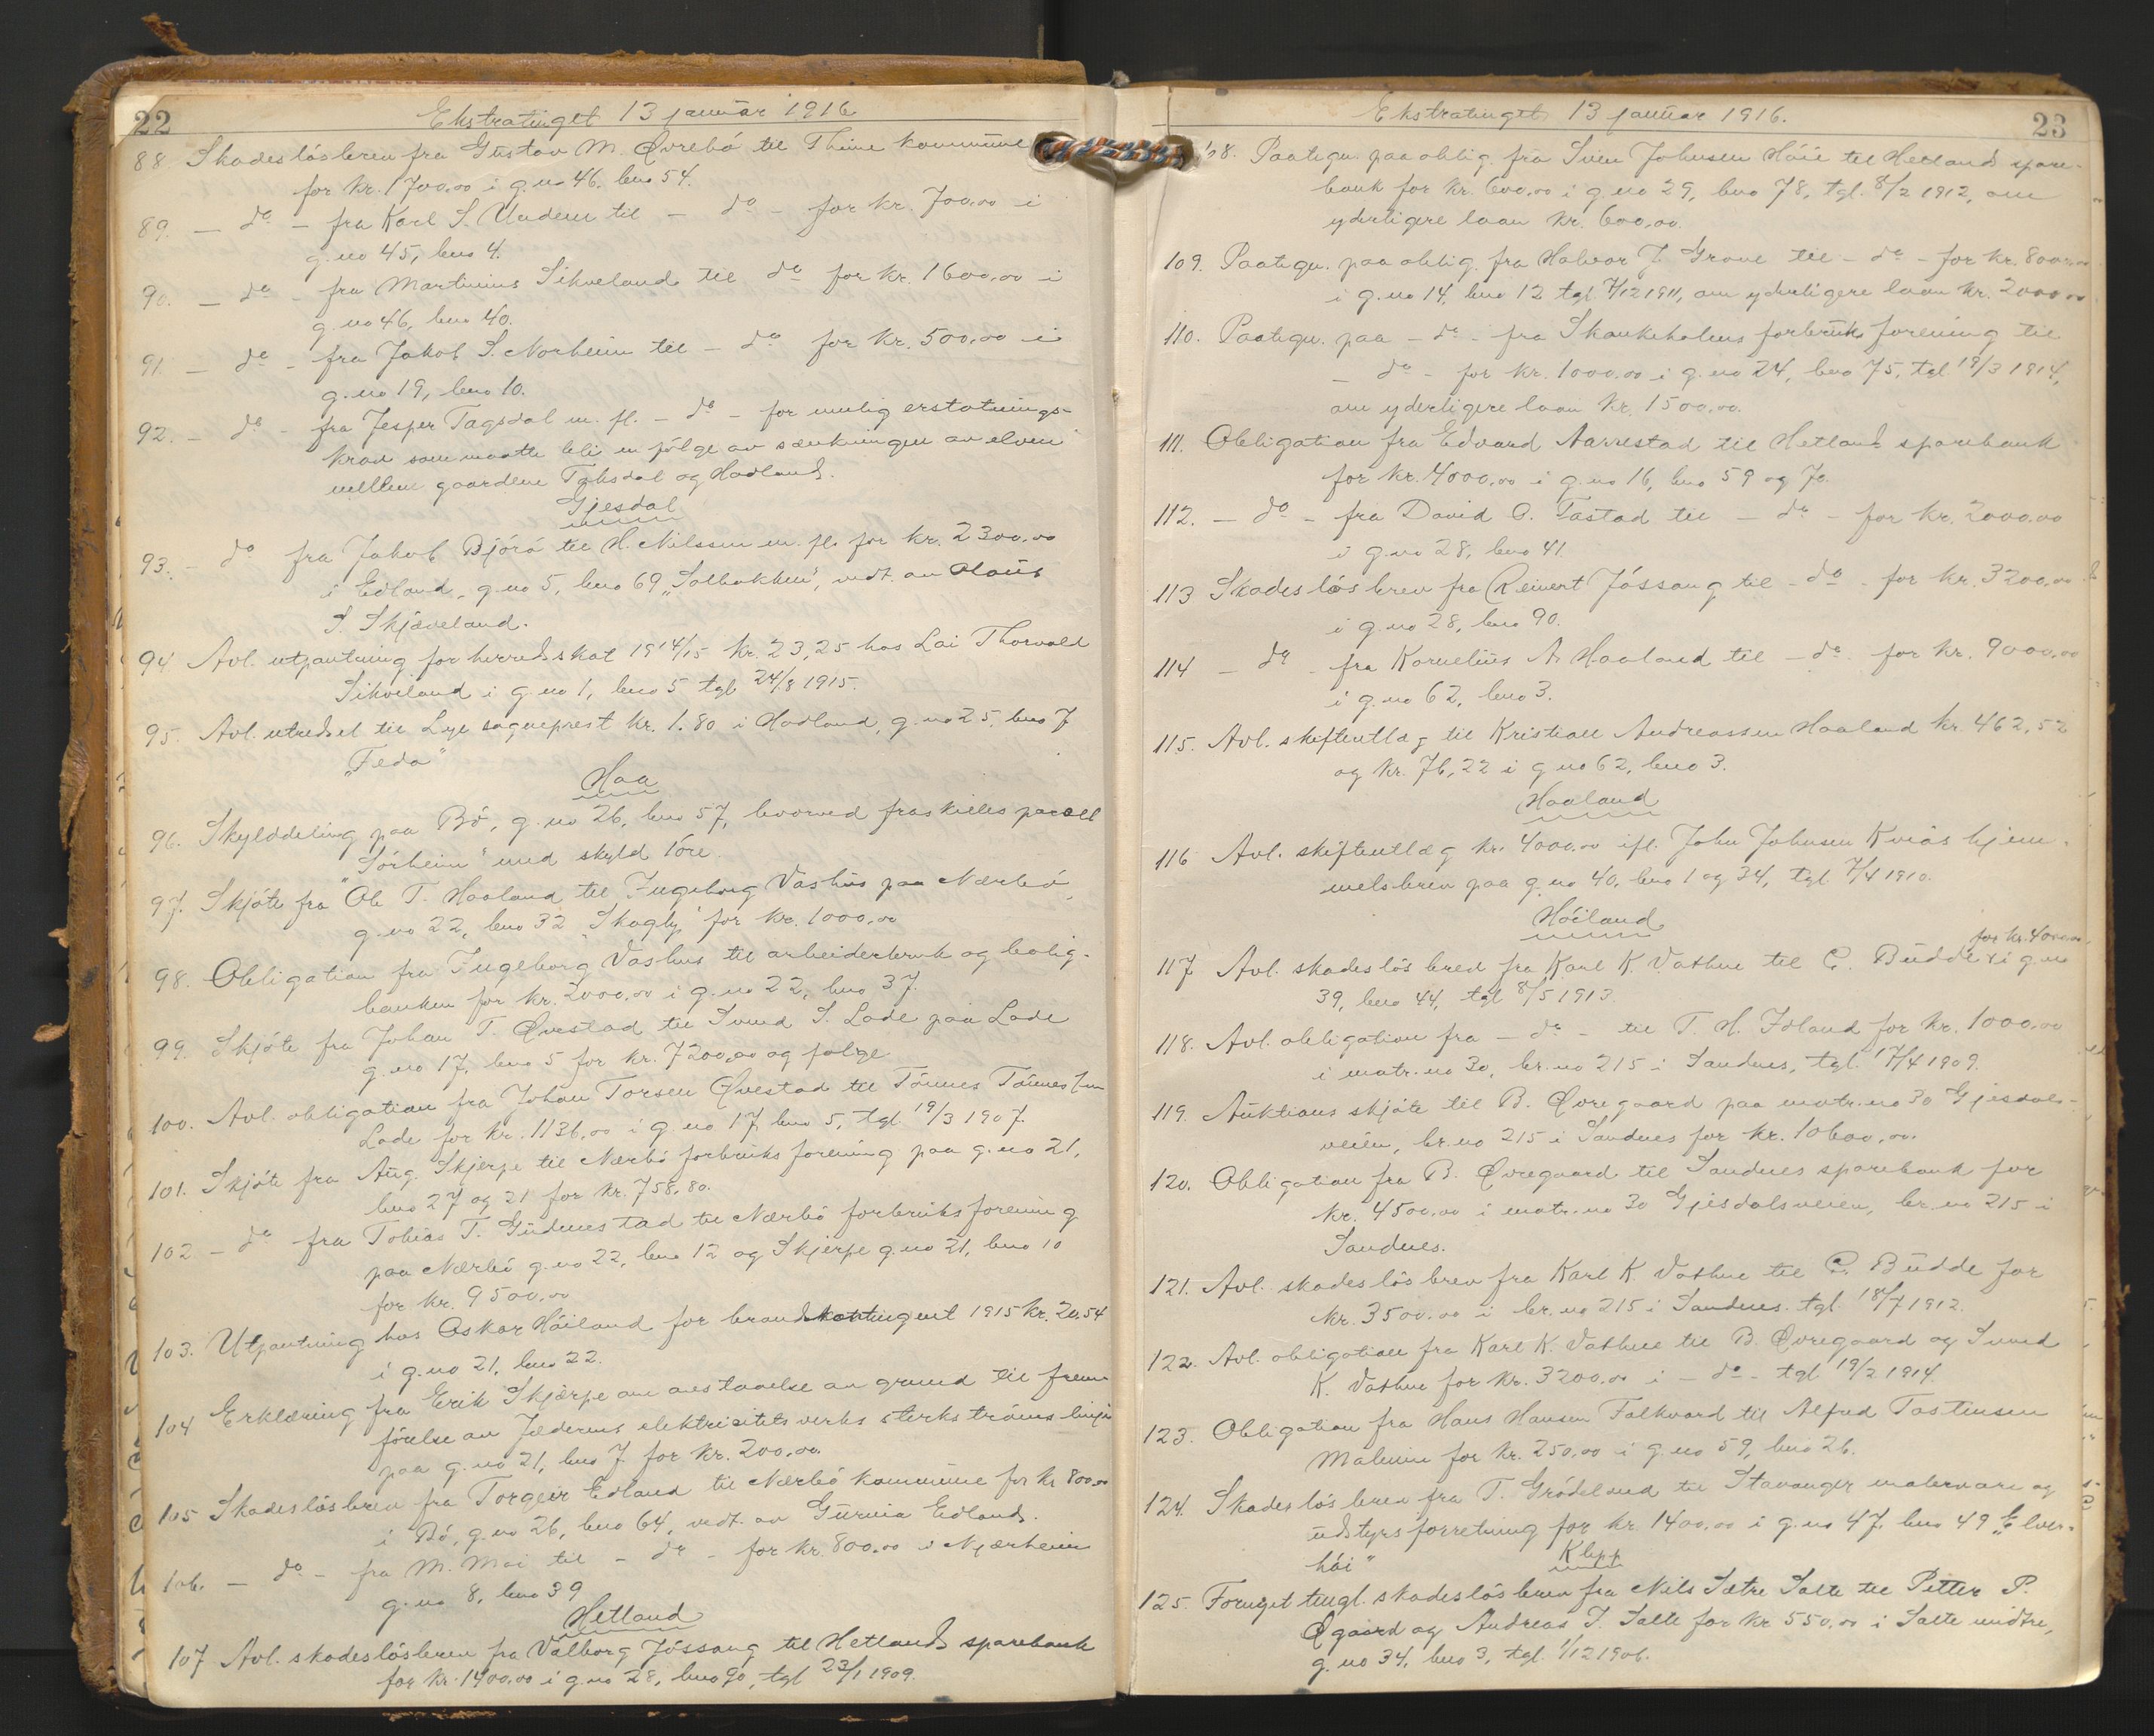 22
Ekstratinget 13 januar 1916
88. Skadeslösbrev fra Gustav M. Øvrebö til Thime kommune
for kr. 1700.00 i g.no 46, bno 54.
89. — do — fra Karl S. Undem til — do — for kr. 700.00 i
g.no 45, bno 4.
90. — do — fra Martinius Sikveland til do for kr. 1600.00 i
g.no 46, bno 40.
91. — do — fra Jakob S. Norheim til — do for kr. 500.00 i
g.no 19, bno 10.
92. — do — fra Jesper Tagsdal m. fl. — do — for mulig erstatnings-
krav som maatte bli en fölge av sænkningen av elven
mellem gaardene Taksdal og Hadland.
Gjesdal
93. — do fra Jakob Bjóró til H. Nilssen m. fl. for kr. 2300.00
i Edland, g.no 5, bno 69 „Solbakken", vedt. av Olaus
S. Skjæveland.
94 Avl. utpantning for herredsskat 1914/15 kr. 23,25 hos Lai Thorvald
Sikveland i g.no 1, bno 5 tgl 24/8 1915.
95. Avl. utredsel til Lye sogneprest kr. 1.80 i Hadland, g.no 25, bno 7
„Feda"
Haa
96. Skylddeling paa Bö, g.no 26, bno 57, hvorved fraskilles parcel
„Sörheim" med skyld 1 öre.
97. Skjöte fra Ole T. Haaland til Ingeborg Vashus paa Nærbö
g.no 22, bno 32 „Skogly" for kr. 1000.00
98. Obligation fra Ingeborg Vashus til arbeiderbruk og bolig-
banken for kr. 2000.00 i g.no 22, bno 37.
99. Skjöte fra Johan T. Øvestad til Svend S. Lode paa Lode
g.no 17, bno 5 for kr. 7200.00 og fölge
100. Avl. obligation fra Johan Torsen Øvestad til Tönnes Tönnessen
Lode for kr. 1136.00 i g.no 17, bno 5, tgl. 19/3 1907.
101. Skjöte fra Aug. Skjerpe til Nærbö forbruksforening paa g.no 21,
bno 27 og 21 for kr. 758.80.
102 — do fra Tobias T. Gudmestad til Nærbö forbruksforening
paa Nærbö g.no 22, bno 12 og Skjerpe g.no 21, bno 10
for kr. 9500.00
103. Utpantning hos Oskar Höiland for brandkontingent 1915 kr. 20,54
i g.no 21, bno 22.
104 Erklæring fra Erik Skjærpe om avstaaelse av grund til frem-
förelse av Jæderens elektricitetsverks sterkströmslinje
paa g.no 21, bno 7 for kr. 200.00.
105 Skadeslösbrev fra Torgeir Edland til Nærbö kommune for kr 800.00
i Bö, g.no 26, bno 64, vedt. av Gurina Edland.
106. — do — fra M. Moi til — do — for kr. 800.00 i Njærheim
g.no 8, bno 39
Hetland
107 Avl. skadeslösbrev fra Valborg Jössang til Hetland sparebank
for kr. 1400.00 i g.no 28, bno 90, tgl 23/1 1909.
Ekstratinget 13 januar 1916.
23
108. Paategn. paa oblig. fra Sven Johnsen Höie til Hetland spare-
bank for kr. 600.00 i g.no 29, bno 78, tgl. 8/2 1912, om
yderligere laan kr. 600.00.
109. Paategn. paa oblig. fra Halvor J. Grove til — do — for kr. 800.00
i g.no 14, bno 12 tgl. 7/12 1911, om yderligere laan kr. 2000.00
110. Paategn. paa — do — fra Skankeholens forbruksforening til
— do — for kr. 1000.00 i g.no 24, bno 75, tgl 19/3 1914,
om yderligere laan kr. 1500.00.
111. Obligation fra Edvard Aarrestad til Hetland sparebank
for kr. 4000.00 i g.no 16, bno 59 og 70.
112. — do — fra David O. Tastad til — do — for kr. 2000.00
i g.no 28, bno 41
113 Skadeslösbrev fra Reinert Jössang til — do — for kr. 3200.00
i g.no 28, bno 90.
114 — do — fra Kornelius A. Haaland til — do — for kr. 9000.00
i g.no 62, bno 3.
115. Avl. skifteutlæg til Kristian Andreassen Haaland kr. 462,52
og kr. 76,22 i g.no 62, bno 3.
Haaland
116 Avl. skifteutlæg kr. 4000.00 ifl. John Johnsen Kviås hjem-
melsbrev paa g.no 40, bno 1 og 34, tgl. 7/4 1910.
Höiland
for kr. 4000.00,
117 Avl. skadeslösbrev fra Karl K. Vathne til C. Budde i g.no
39, bno 44, tgl 8/5 1913.
118. Avl. obligation fra — do — til T. H. Idland for kr. 1000.00
i matr.no 30, br.no 215 i Sandnes, tgl. 17/4 1909.
119. Auktionsskjöte til B. Øvregaard paa matr.no 30 Gjesdals-
veien, br.no 215 i Sandnes for kr. 10600.00.
120. Obligation fra B. Øvregaard til Sandnes sparebank for
kr. 4500.00 i matr.no 30 Gjesdalsveien, br.no 215 i
Sandnes.
121. Avl. skadeslösbrev fra Karl K. Vathne til C. Budde for
kr. 3500.00 i br.no 215 i Sandnes. tgl. 18/7 1912.
122. Avl. obligation fra Karl K. Vathne til B. Øvregaard og Svend
K. Vathne for kr. 3200.00 i — do — tgl 19/2 1914.
123. Obligation fra Hans Hansen Folkvord til Alfred Tostensen
Malmin for kr. 250.00 i g.no 59, bno 26.
124. Skadeslösbrev fra T. Grödeland til Stavanger malervare og
udstyrsforretning for kr. 1400.00 i g.no 47, bno 49 „Elver-
höi"
Klepp
125. Fornyet tingl. skadeslösbrev fra Nils Sætre Salte til Petter P.
Øgaard og Andreas J. Salte for kr 550.00 i Salte midtre,
g.no 34, bno 3, tgl. 1/12 1906.